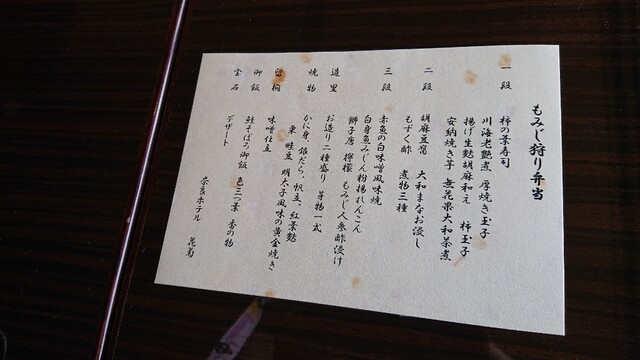 もみじ狩り弁当
一段 柿の葉寿司
川海老艶煮 厚焼き玉子
揚げ生麩胡麻和え 柿玉子
安納焼き芋 無花果大和茶煮
二段 胡麻豆腐 大和まなお浸し
もずく酢 煮物三種
三段 赤魚の白味噌風味焼
白身魚みじん粉揚れんこん
獅子唐 檸檬 もみじ人参酢漬け
造里 お造り二種盛り 芽物一式
焼物 かに身、銀だら、帆立、紅葉麩
栗 畦豆 明太子風味の黄金焼き
留椀 味噌仕立
御飯 鮭そぼろ御飯 色三つ葉 香の物
宝石 デザート
奈良ホテル 花菊